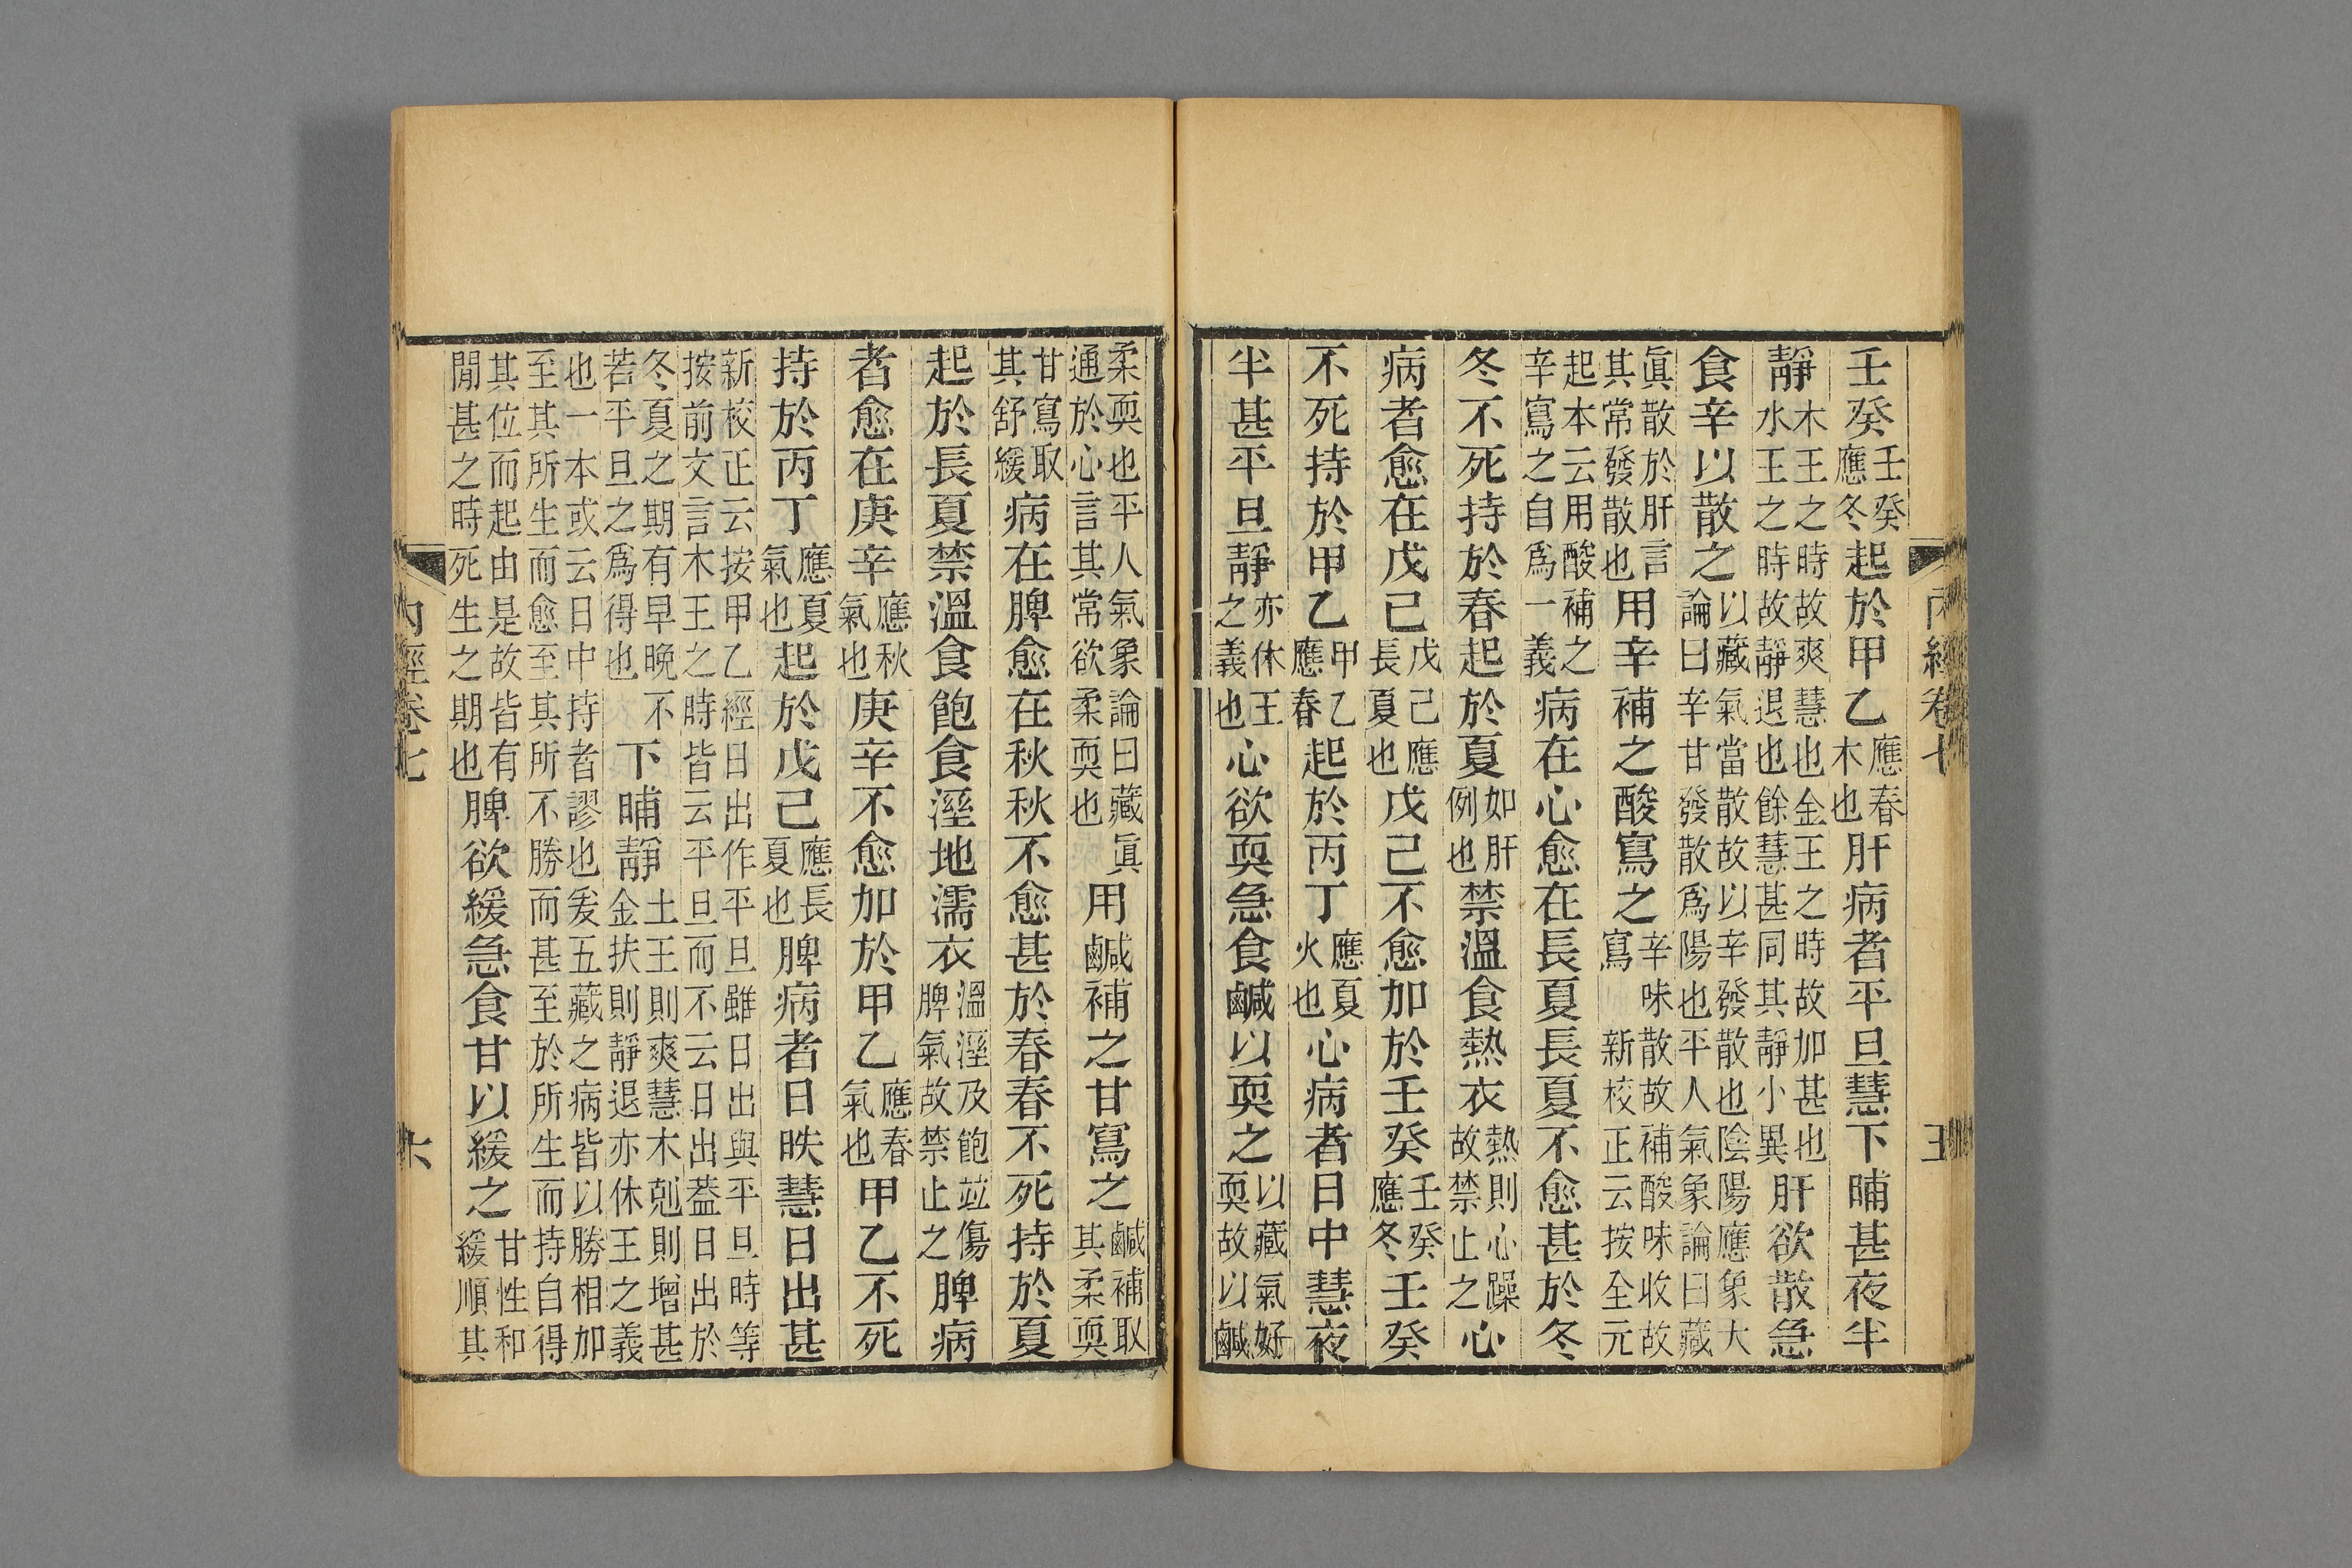 內經卷七 五
壬癸壬癸應冬起於甲乙應春木也肝病者平旦慧下晡甚夜半
靜木王之時故爽慧也金王之時故加甚也水王之時故靜退也餘慧甚同其靜小異肝欲散急
食辛以散之以藏氣當散故以辛發散也陰陽應象大論曰辛甘發散爲陽也平人氣象論曰藏
眞散於肝言其常發散也用辛補之酸寫之辛味散故補酸味收故寫 新校正云按全元
起本云用酸補之辛寫之自爲一義病在心愈在長夏長夏不愈甚於冬
冬不死持於春起於夏如肝例也禁溫食熱衣熱則心躁故禁止之心
病者愈在戊己戊己應長夏也戊己不愈加於壬癸壬癸應冬壬癸
不死持於甲乙甲乙應春起於丙丁應夏火也心病者日中慧夜
半甚平旦靜亦休王之義也心欲耎急食鹹以耎之以藏氣好耎故以鹹
柔耎也平人氣象論曰藏眞通於心言其常欲柔耎也用鹹補之甘寫之鹹補取其柔耎
甘寫取其舒緩病在脾愈在秋秋不愈甚於春春不死持於夏
起於長夏禁溫食飽食溼地濡衣溫溼及飽竝傷脾氣故禁止之脾病
者愈在庚辛應秋氣也庚辛不愈加於甲乙應春氣也甲乙不死
持於丙丁應夏氣也起於戊己應長夏也脾病者日昳慧日出甚
新校正云按甲乙經日出作平旦雖日出與平旦時等按前文言木王之時皆云平旦而不云日出葢日出於
冬夏之期有早晚不若平旦之爲得也下晡靜土王則爽慧木剋則增甚金扶則靜退亦休王之義
也一本或云日中持者謬也爰五藏之病皆以勝相加至其所生而愈至其所不勝而甚至於所生而持自得
其位而起由是故皆有閒甚之時死生之期也脾欲緩急食甘以緩之甘性和緩順其
內經卷七 六